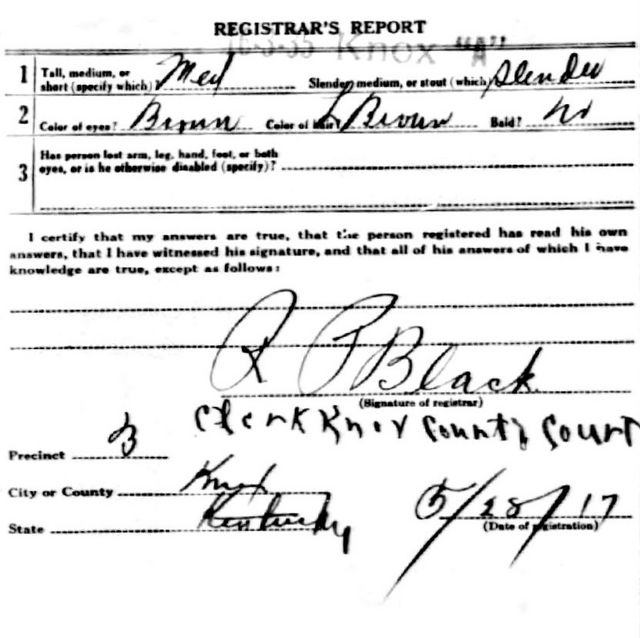 REGISTRAR'S REPORT
Knox
1 Tall, medium, or short (specify which)? Med Slender, medium, or stout (which)? Slender
2 Color of eyes? Brown Color of hair? L Brown Bald? No
3 Has person lost arm, leg, hand, foot, or both
eyes, or is he otherwise disabled (specify)?
I certify that my answers are true, that the person registered has read his own
answers, that I have witnessed his signature, and that all of his answers of which I have
knowledge are true, except as follows:
R P Black
(Signature of registrar)
Clerk Knox County Court
Precinct 3
City or County Knox
State Kentucky
5/28/17
(Date of registration)